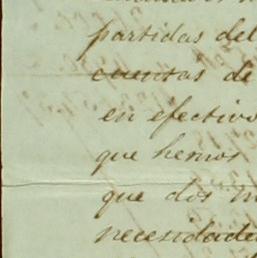 partidas del
cuentas de
en efectivo
que hemos
que dos
necesidade